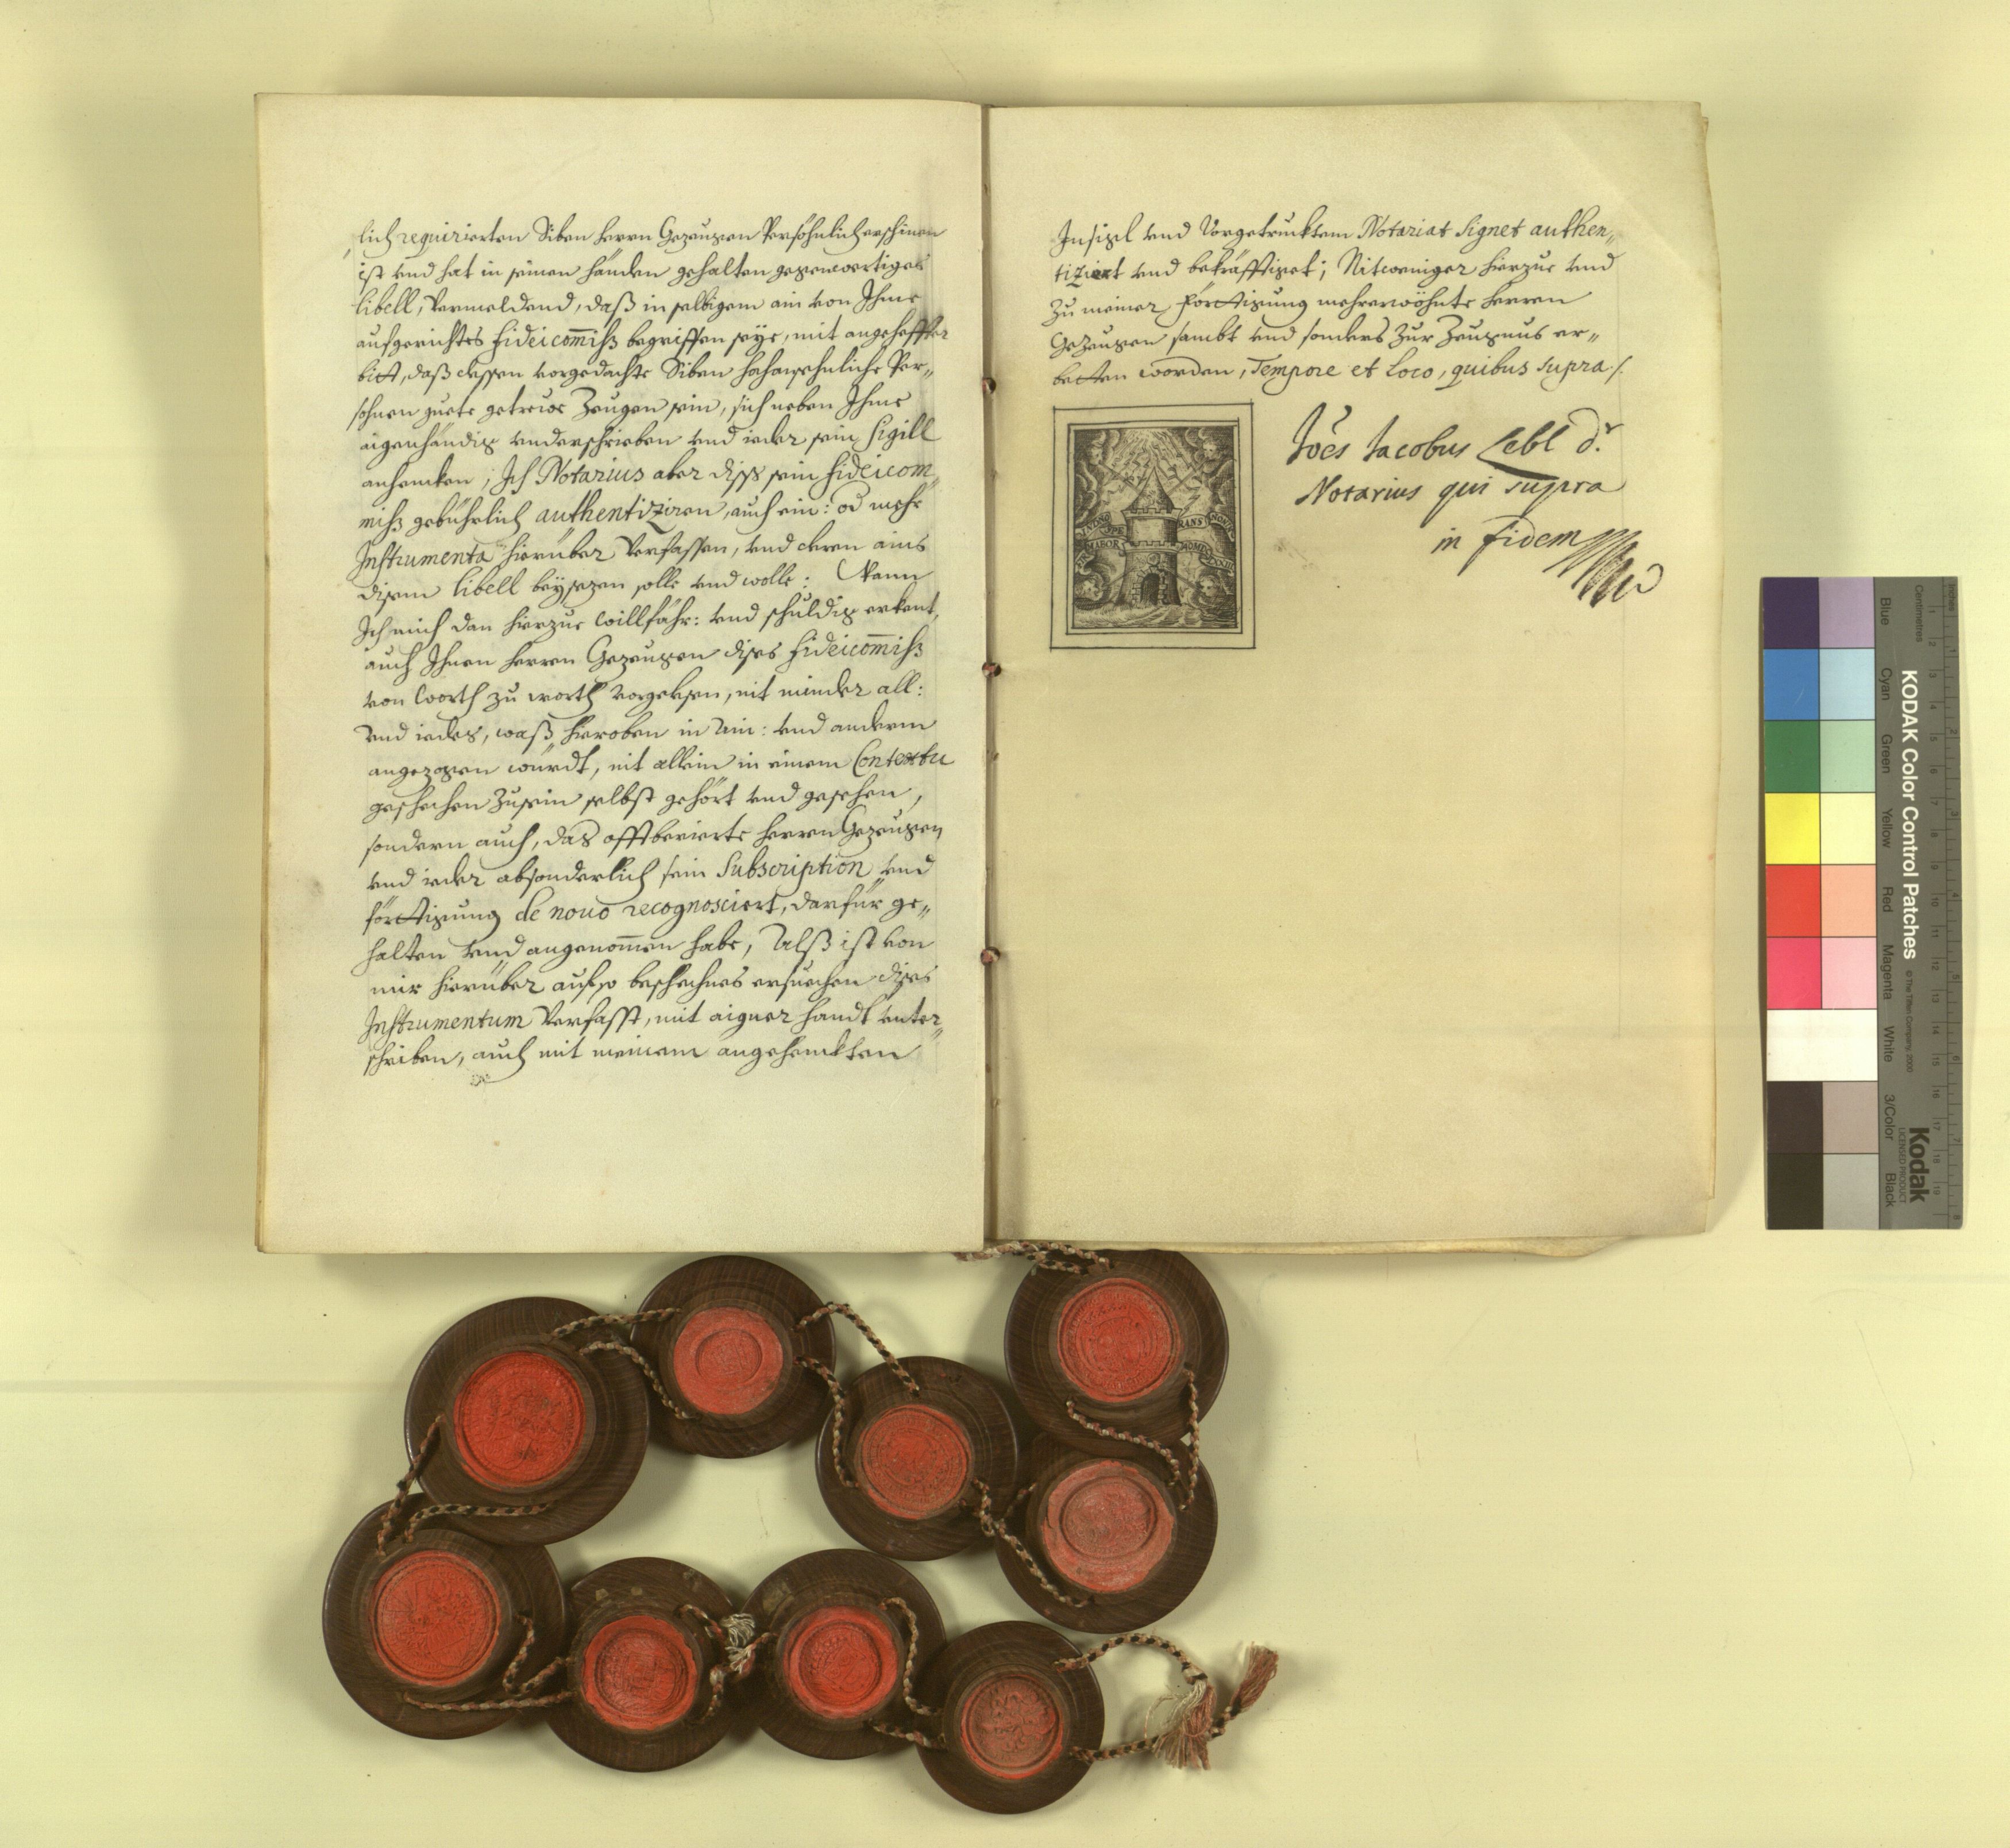 lich requirierten Siben herrn Gezeugen Persöhnlich erschinen
ist vnd hat in seinen händen gehalten gegenwertiges
libell, Vermeldend, daß in selbigem ain von Ihme
aufgerichtes fideicom̄iß begriffen seye, mit angehefffter
bitt, daß dessen vorgedachte Siben hochansehnliche Per„
sohnen guete getrewe Zeugen sein, sich neben Ihme
aigenhändig vnderschrieben vnd ieder sein Sigill
anhencken; Ich Notarius aber diß sein fideicom„
miß gebührlich authentiziren, auch ein: od mehr
Instrumenta hierüber Verfassen, vnd deren ains
disem libell beysezen solle vnd wolle: Wann
Ich mich dan hierzue willfähr: vnd schuldig erkent,
auch Ihnen herren Gezeugen dises fideicom̄iß
von worth zu worth vorgelesen, nit minder all:
vnd iedes, waß hieroben in Ain: vnd anderm
angezogen wurdt, nit allein in einem Contextu
geschechen zusein selbst gehört vnd gesehen,
sondern auch, das offtberierte herren Gezeugen
vnd ieder absonderlich sein Subscription vnd
förttigung de nouo recognosciert, darfür ge„
halten vnd angenom̄en habe, Alß ist von
mir hierüber auf so beschechnes ersuechen dises
Instrumentum Verfasst, mit aigner handt vnter„
schriben, auch mit meinem angehenckten
Insigel vnd Vorgetrucktem Notariat Signet authen„
tiziert vnd bekräfftiget; Nitweniger hierzue vnd
zu meiner förttigung mehrerwöhnte herren
Gezeugen sambt vnd sonders zur Zeugnus er„
betten worden, Tempore et Loco, quibus supra /.
Joēs Jacobus Lebl d.r
Notarius qui supra
in fidem
SPE
LABOR
KODAK Color Control Patches
© The Tiffen Company, 2000
Kodak
LICENSED PRODUCT
Inches
Centimetres
Blue Cyan Green Yellow Red Magenta White 3/Color Black